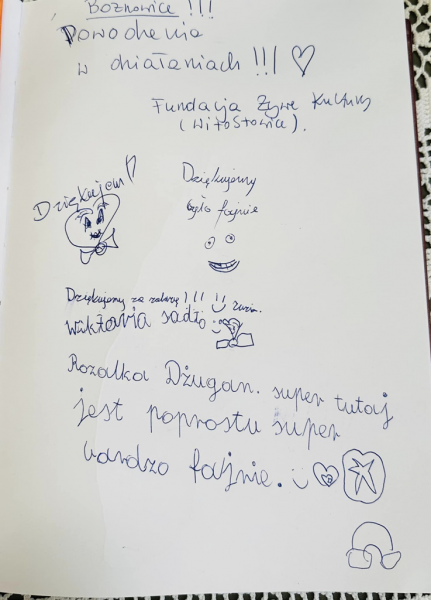 Bożnowice !!!
Powodzenia
w działaniach !!!
Fundacja Żywe Kultury
(Witostowice).
Dziękujem
Dziękujemy
było fajnie
Dziękujemy za zabawę !!!
Wiktoria sadło
Rozalka Dżugan. super tutaj
jest poprostu super
bardzo fajnie.